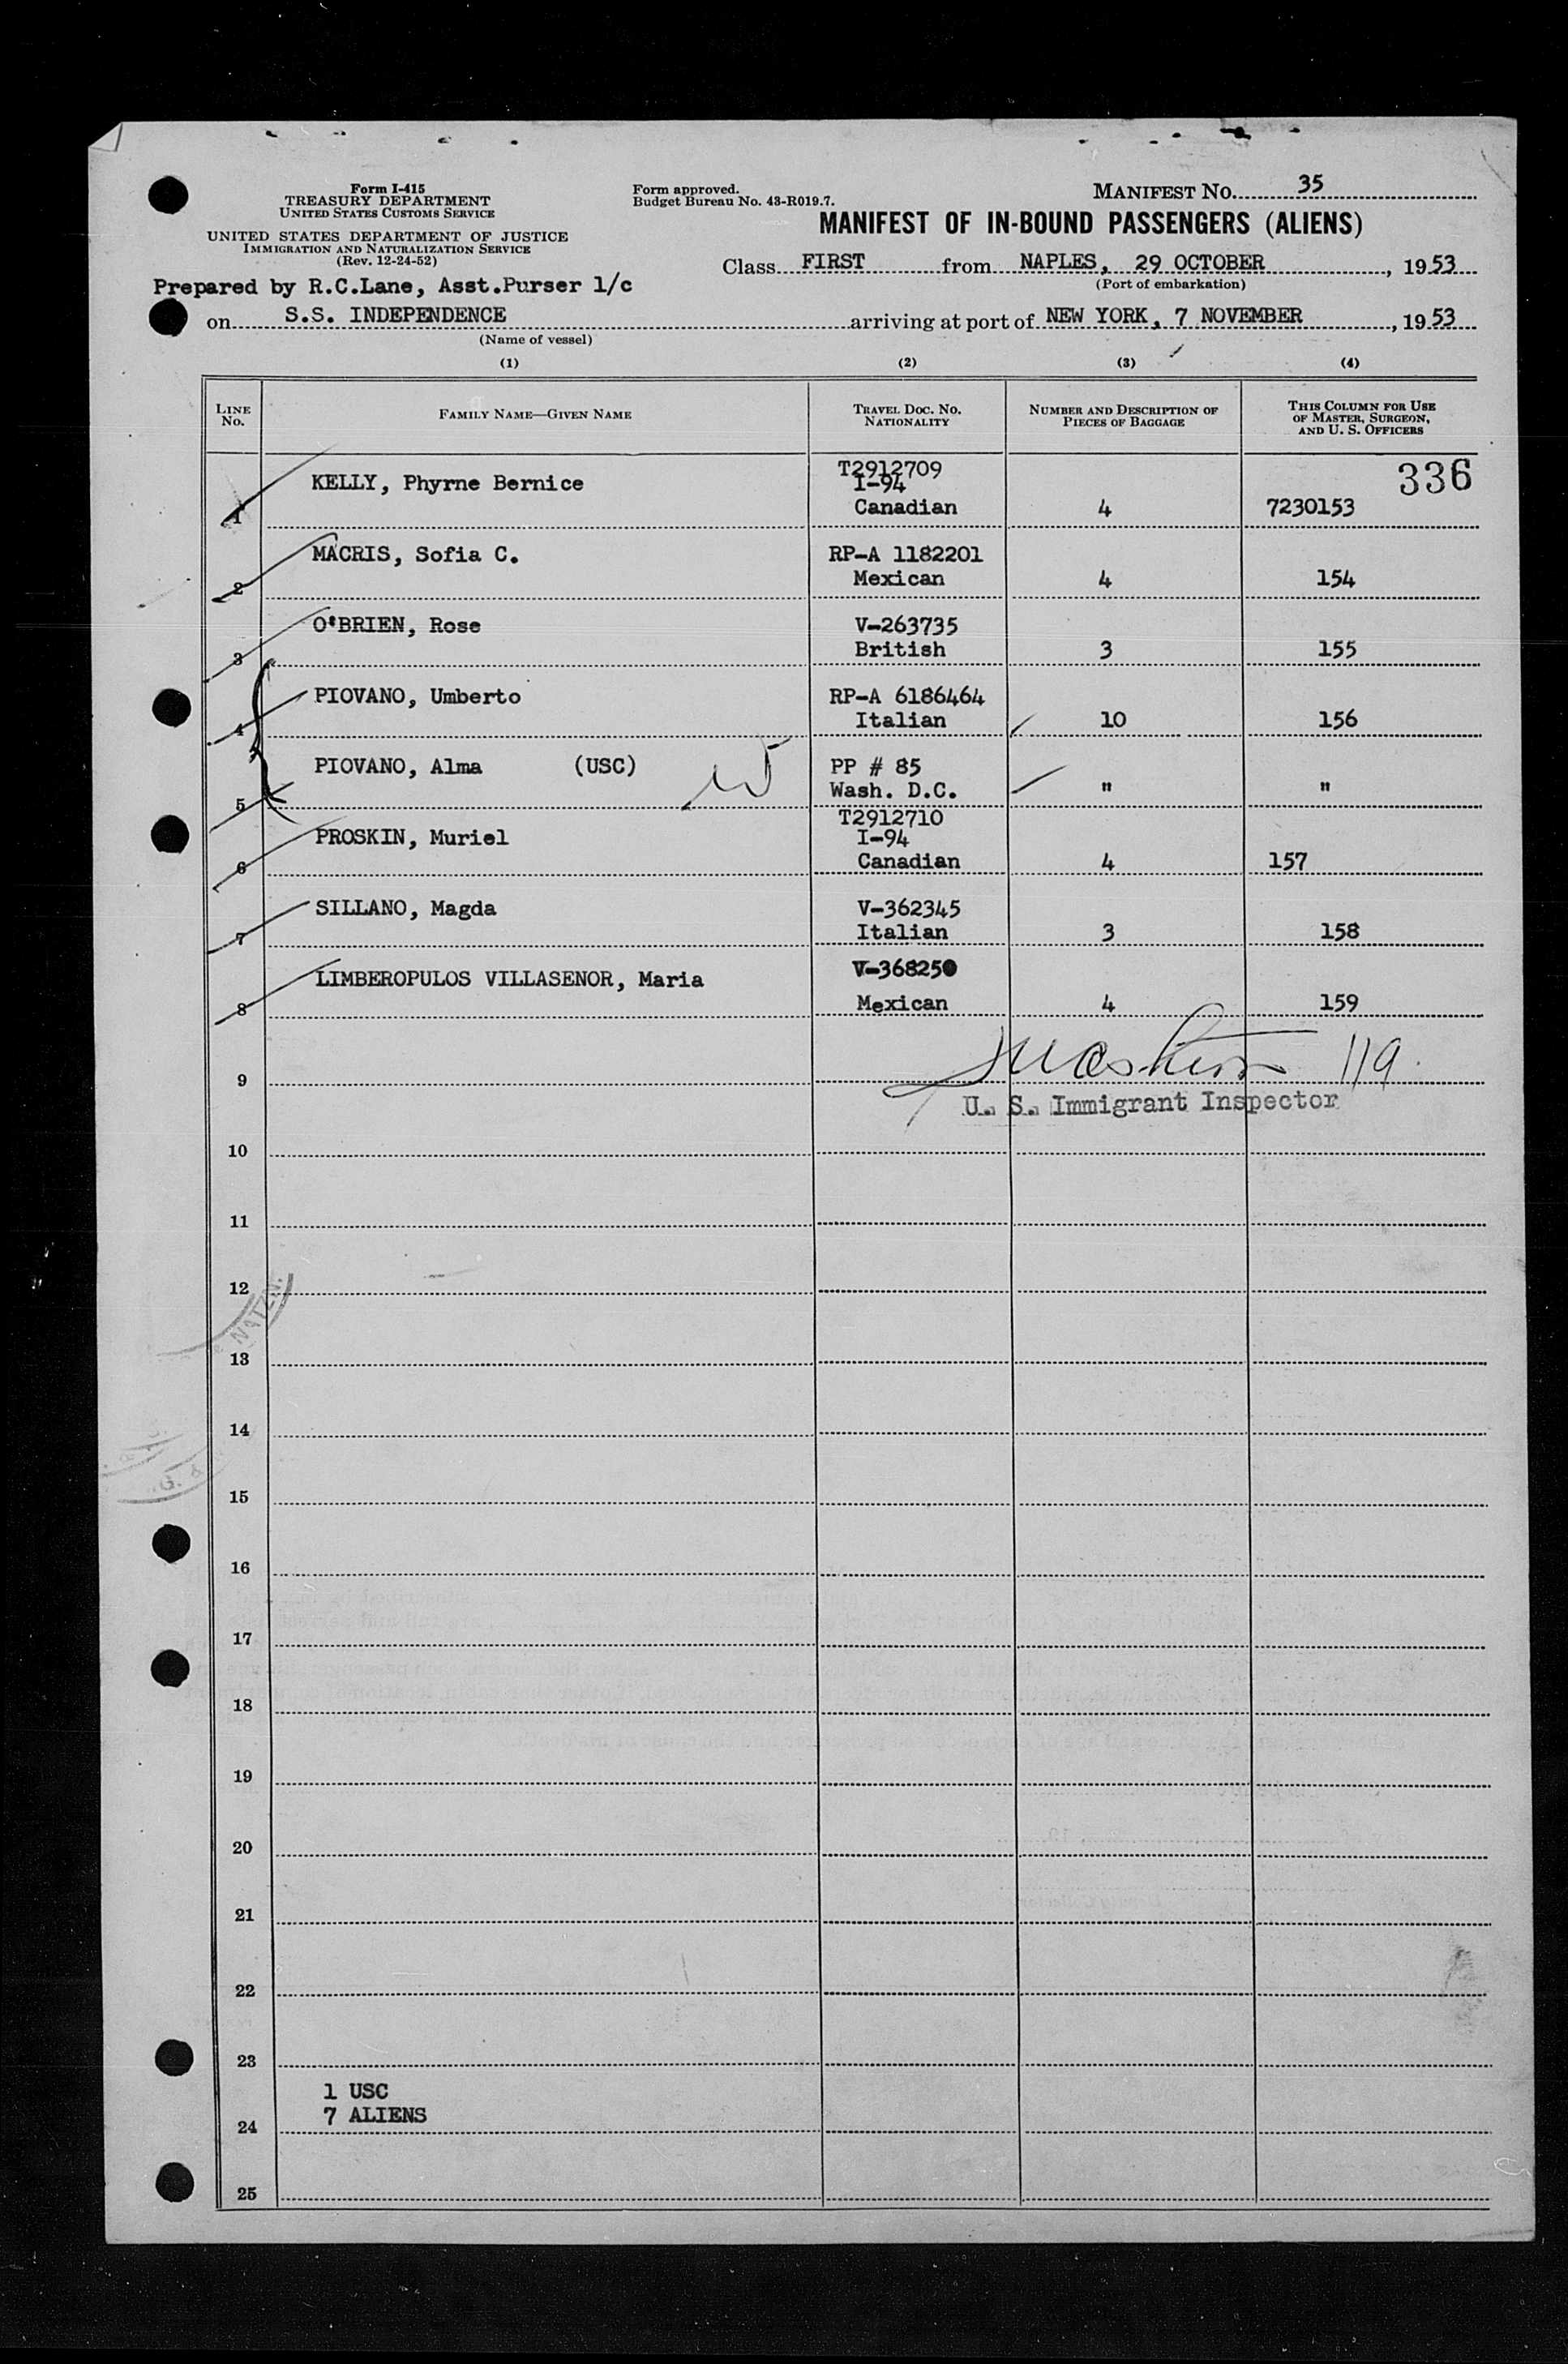 Form I-415
TREASURY DEPARTMENT
UNITED STATES CUSTOMS SERVICE
UNITED STATES DEPARTMENT OF JUSTICE
IMMIGRATION AND NATURALIZATION SERVICE
(Rev. 12-24-52)
Form approved.
Budget Bureau No. 43-R019.7.
MANIFEST NO. 35
MANIFEST OF IN-BOUND PASSENGERS (ALIENS)
Class FIRST from NAPLES, 29 OCTOBER, 1953
(Port of embarkation)
Prepared by R.C.Lane, Asst.Purser 1/c
on S.S. INDEPENDENCE arriving at port of NEW YORK, 7 NOVEMBER, 1953
(Name of vessel)
(1) (2) (3) (4)
LINE NO. FAMILY NAME—GIVEN NAME TRAVEL DOC. NO. NATIONALITY NUMBER AND DESCRIPTION OF PIECES OF BAGGAGE THIS COLUMN FOR USE OF MASTER, SURGEON, AND U. S. OFFICERS
336
1 KELLY, Phyrne Bernice T2912709 I-94 Canadian 4 7230153
2 MACRIS, Sofia C. RP-A 1182201 Mexican 4 154
3 O'BRIEN, Rose V-263735 British 3 155
4 PIOVANO, Umberto RP-A 6186464 Italian 10 156
5 PIOVANO, Alma (USC) PP # 85 Wash. D.C. " "
6 PROSKIN, Muriel T2912710 I-94 Canadian 4 157
7 SILLANO, Magda V-362345 Italian 3 158
8 LIMBEROPULOS VILLASENOR, Maria V-368250 Mexican 4 159
9 119
U. S. Immigrant Inspector
10
11
12
NATZN.
13
14
15
16
17
18
19
20
21
22
23
1 USC
7 ALIENS
24
25